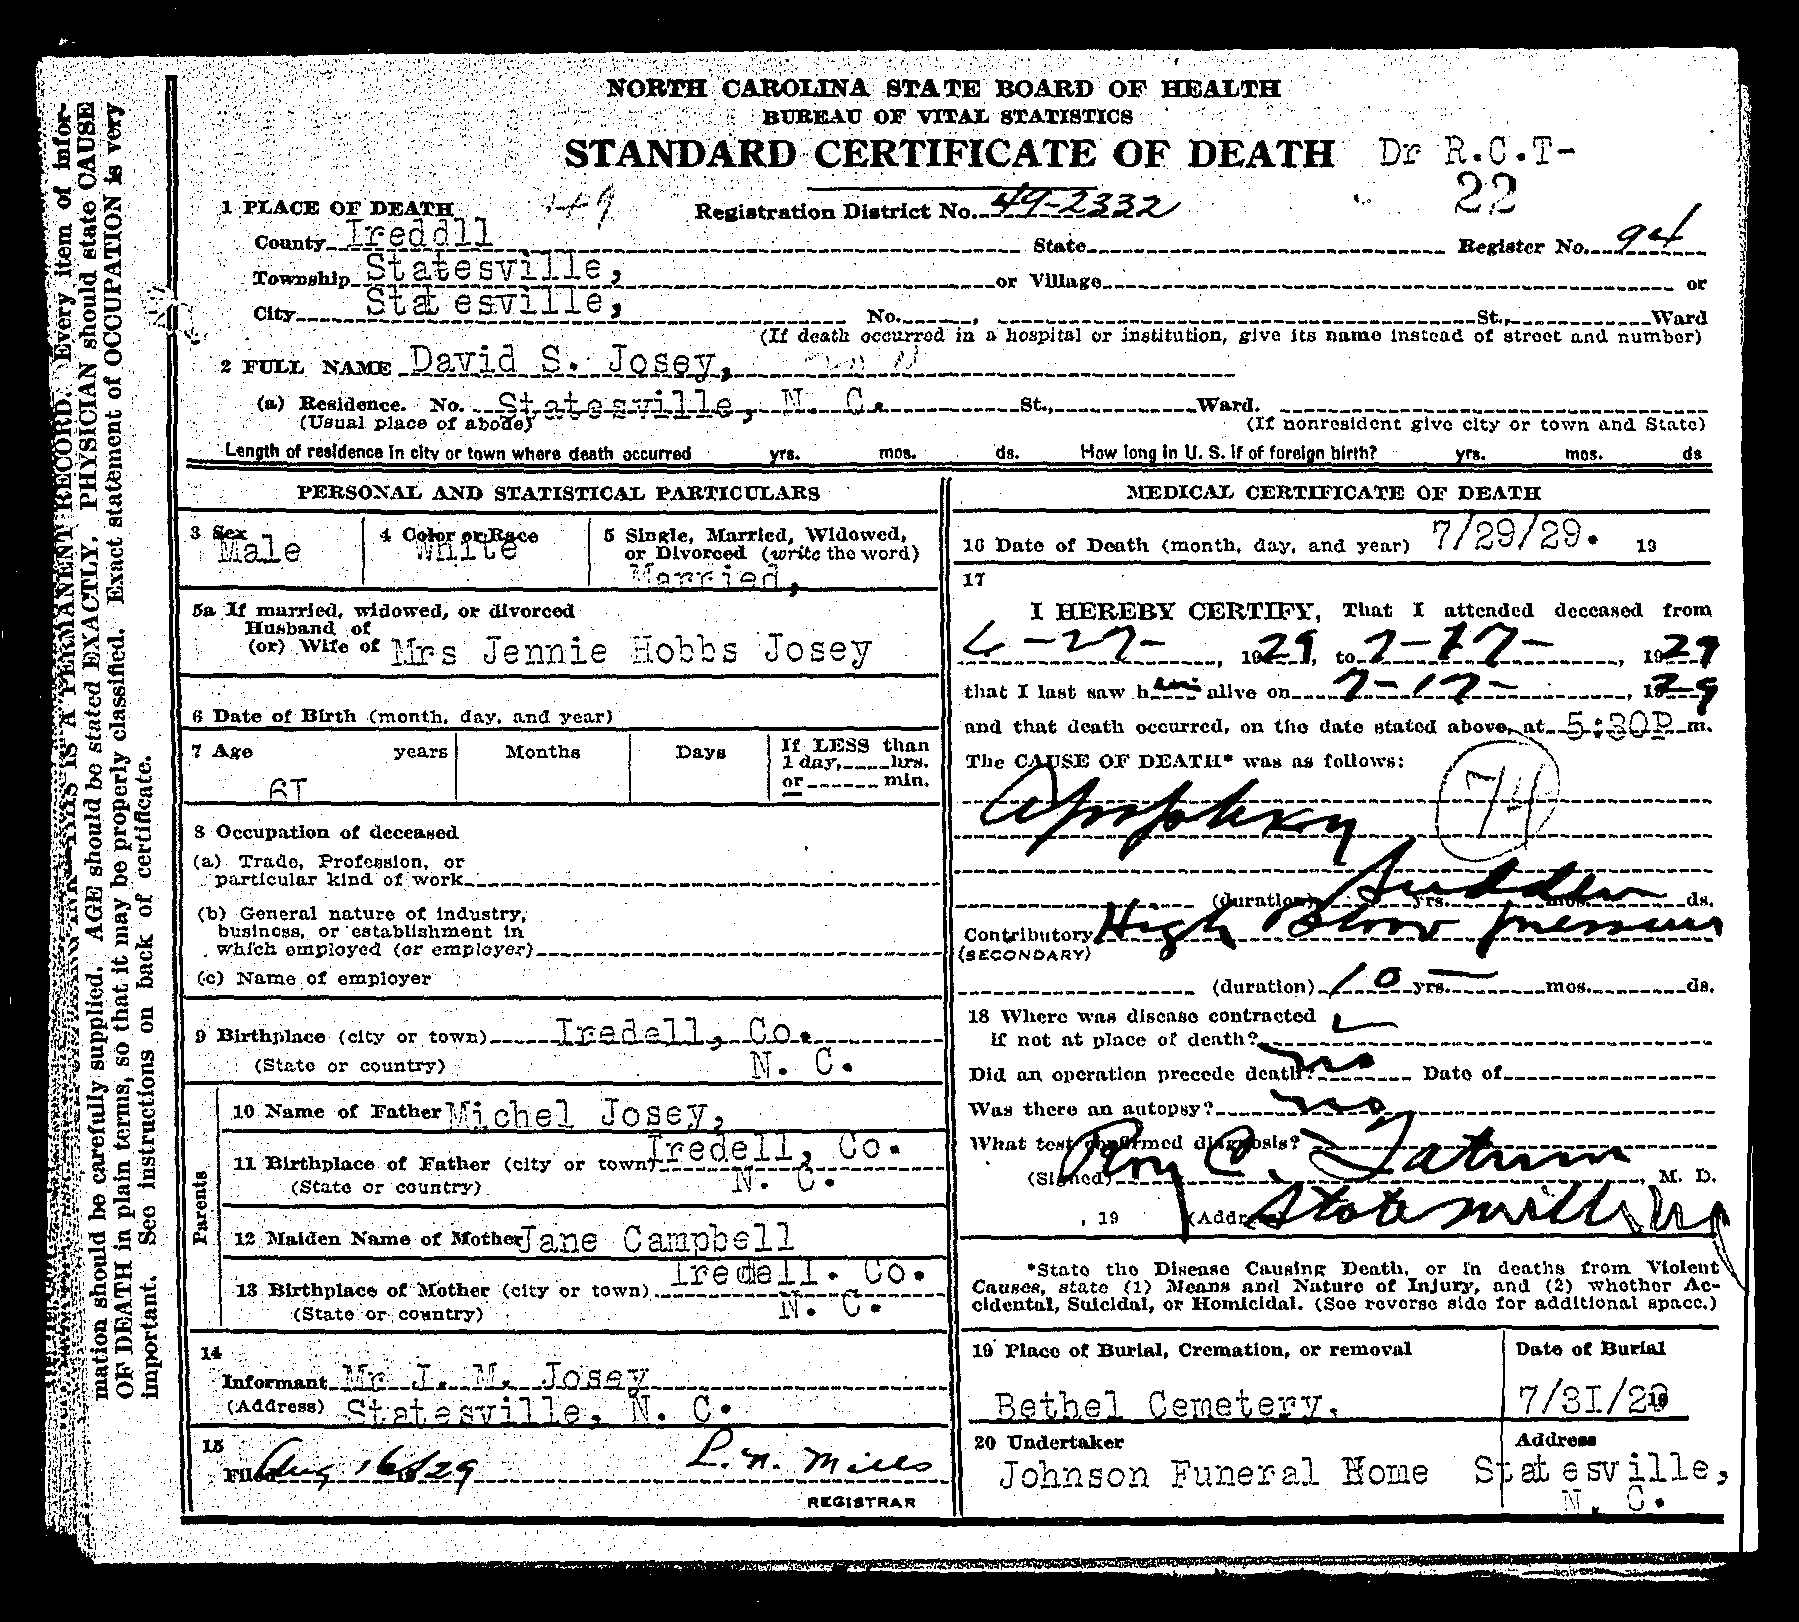 NORTH CAROLINA STATE BOARD OF HEALTH
BUREAU OF VITAL STATISTICS
STANDARD CERTIFICATE OF DEATH Dr R.C.T-
22
1 PLACE OF DEATH 49 Registration District No. 49-2332
County Iredell State Register No. 94
Township Statesville, or Village or
City Statesville, No. , St., Ward
(If death occurred in a hospital or institution, give its name instead of street and number)
2 FULL NAME David S. Josey,
(a) Residence. No. Statesville, N. C. St., Ward.
(Usual place of abode) (If nonresident give city or town and State)
Length of residence in city or town where death occurred yrs. mos. ds. How long in U. S. if of foreign birth? yrs. mos. ds
PERSONAL AND STATISTICAL PARTICULARS
3 Sex Male
4 Color or Race White
5 Single, Married, Widowed,
or Divorced (write the word)
Married,
5a If married, widowed, or divorced
Husband of
(or) Wife of Mrs Jennie Hobbs Josey
6 Date of Birth (month, day, and year)
7 Age years Months Days
6I
If LESS than
1 day, hrs.
or min.
8 Occupation of deceased
(a) Trade, Profession, or
particular kind of work
(b) General nature of industry,
business, or establishment in
which employed (or employer)
(c) Name of employer
9 Birthplace (city or town) Iredell, Co.
(State or country) N. C.
Parents
10 Name of Father Michel Josey,
11 Birthplace of Father (city or town) Iredell, Co.
(State or country) N. C.
12 Maiden Name of Mother Jane Campbell
13 Birthplace of Mother (city or town) Iredell. Co.
(State or country) N. C.
14
Informant Mr J. M. Josey
(Address) Statesville, N. C.
15
Filed Aug 16/29 L. N. Mills
REGISTRAR
MEDICAL CERTIFICATE OF DEATH
16 Date of Death (month, day, and year) 7/29/29. 19
17
I HEREBY CERTIFY, That I attended deceased from
6-27-, 1929, to 7-17-, 1929
that I last saw him alive on 7-17-, 1929
and that death occurred, on the date stated above, at 5:30P m.
The CAUSE OF DEATH* was as follows:
Apoplexy 74
(duration) Sudden yrs. mos. ds.
Contributory High Blood pressure
(SECONDARY)
(duration) 10 yrs. mos. ds.
18 Where was disease contracted
if not at place of death?
Did an operation precede death? no Date of
Was there an autopsy? no
What test confirmed diagnosis?
(Signed) Roy C. Tatum, M. D.
, 19 (Address) Statesville, NC
*State the Disease Causing Death, or in deaths from Violent
Causes, state (1) Means and Nature of Injury, and (2) whether Ac-
cidental, Suicidal, or Homicidal. (See reverse side for additional space.)
19 Place of Burial, Cremation, or removal Date of Burial
Bethel Cemetery. 7/3I/29 19
20 Undertaker Address
Johnson Funeral Home Statesville,
N. C.
RECORD. Every item of infor-
mation should be carefully supplied. AGE should be stated EXACTLY. PHYSICIAN should state CAUSE
OF DEATH in plain terms, so that it may be properly classified. Exact statement of OCCUPATION is very
important. See instructions on back of certificate.
THIS IS A PERMANENT